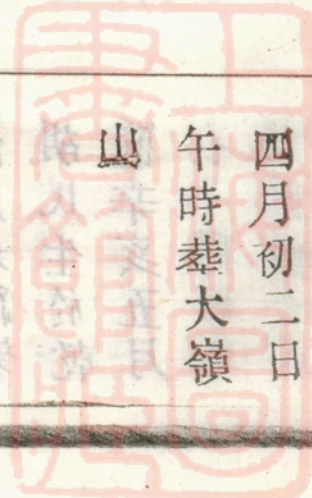 四月初二日
午時塟大嶺
山